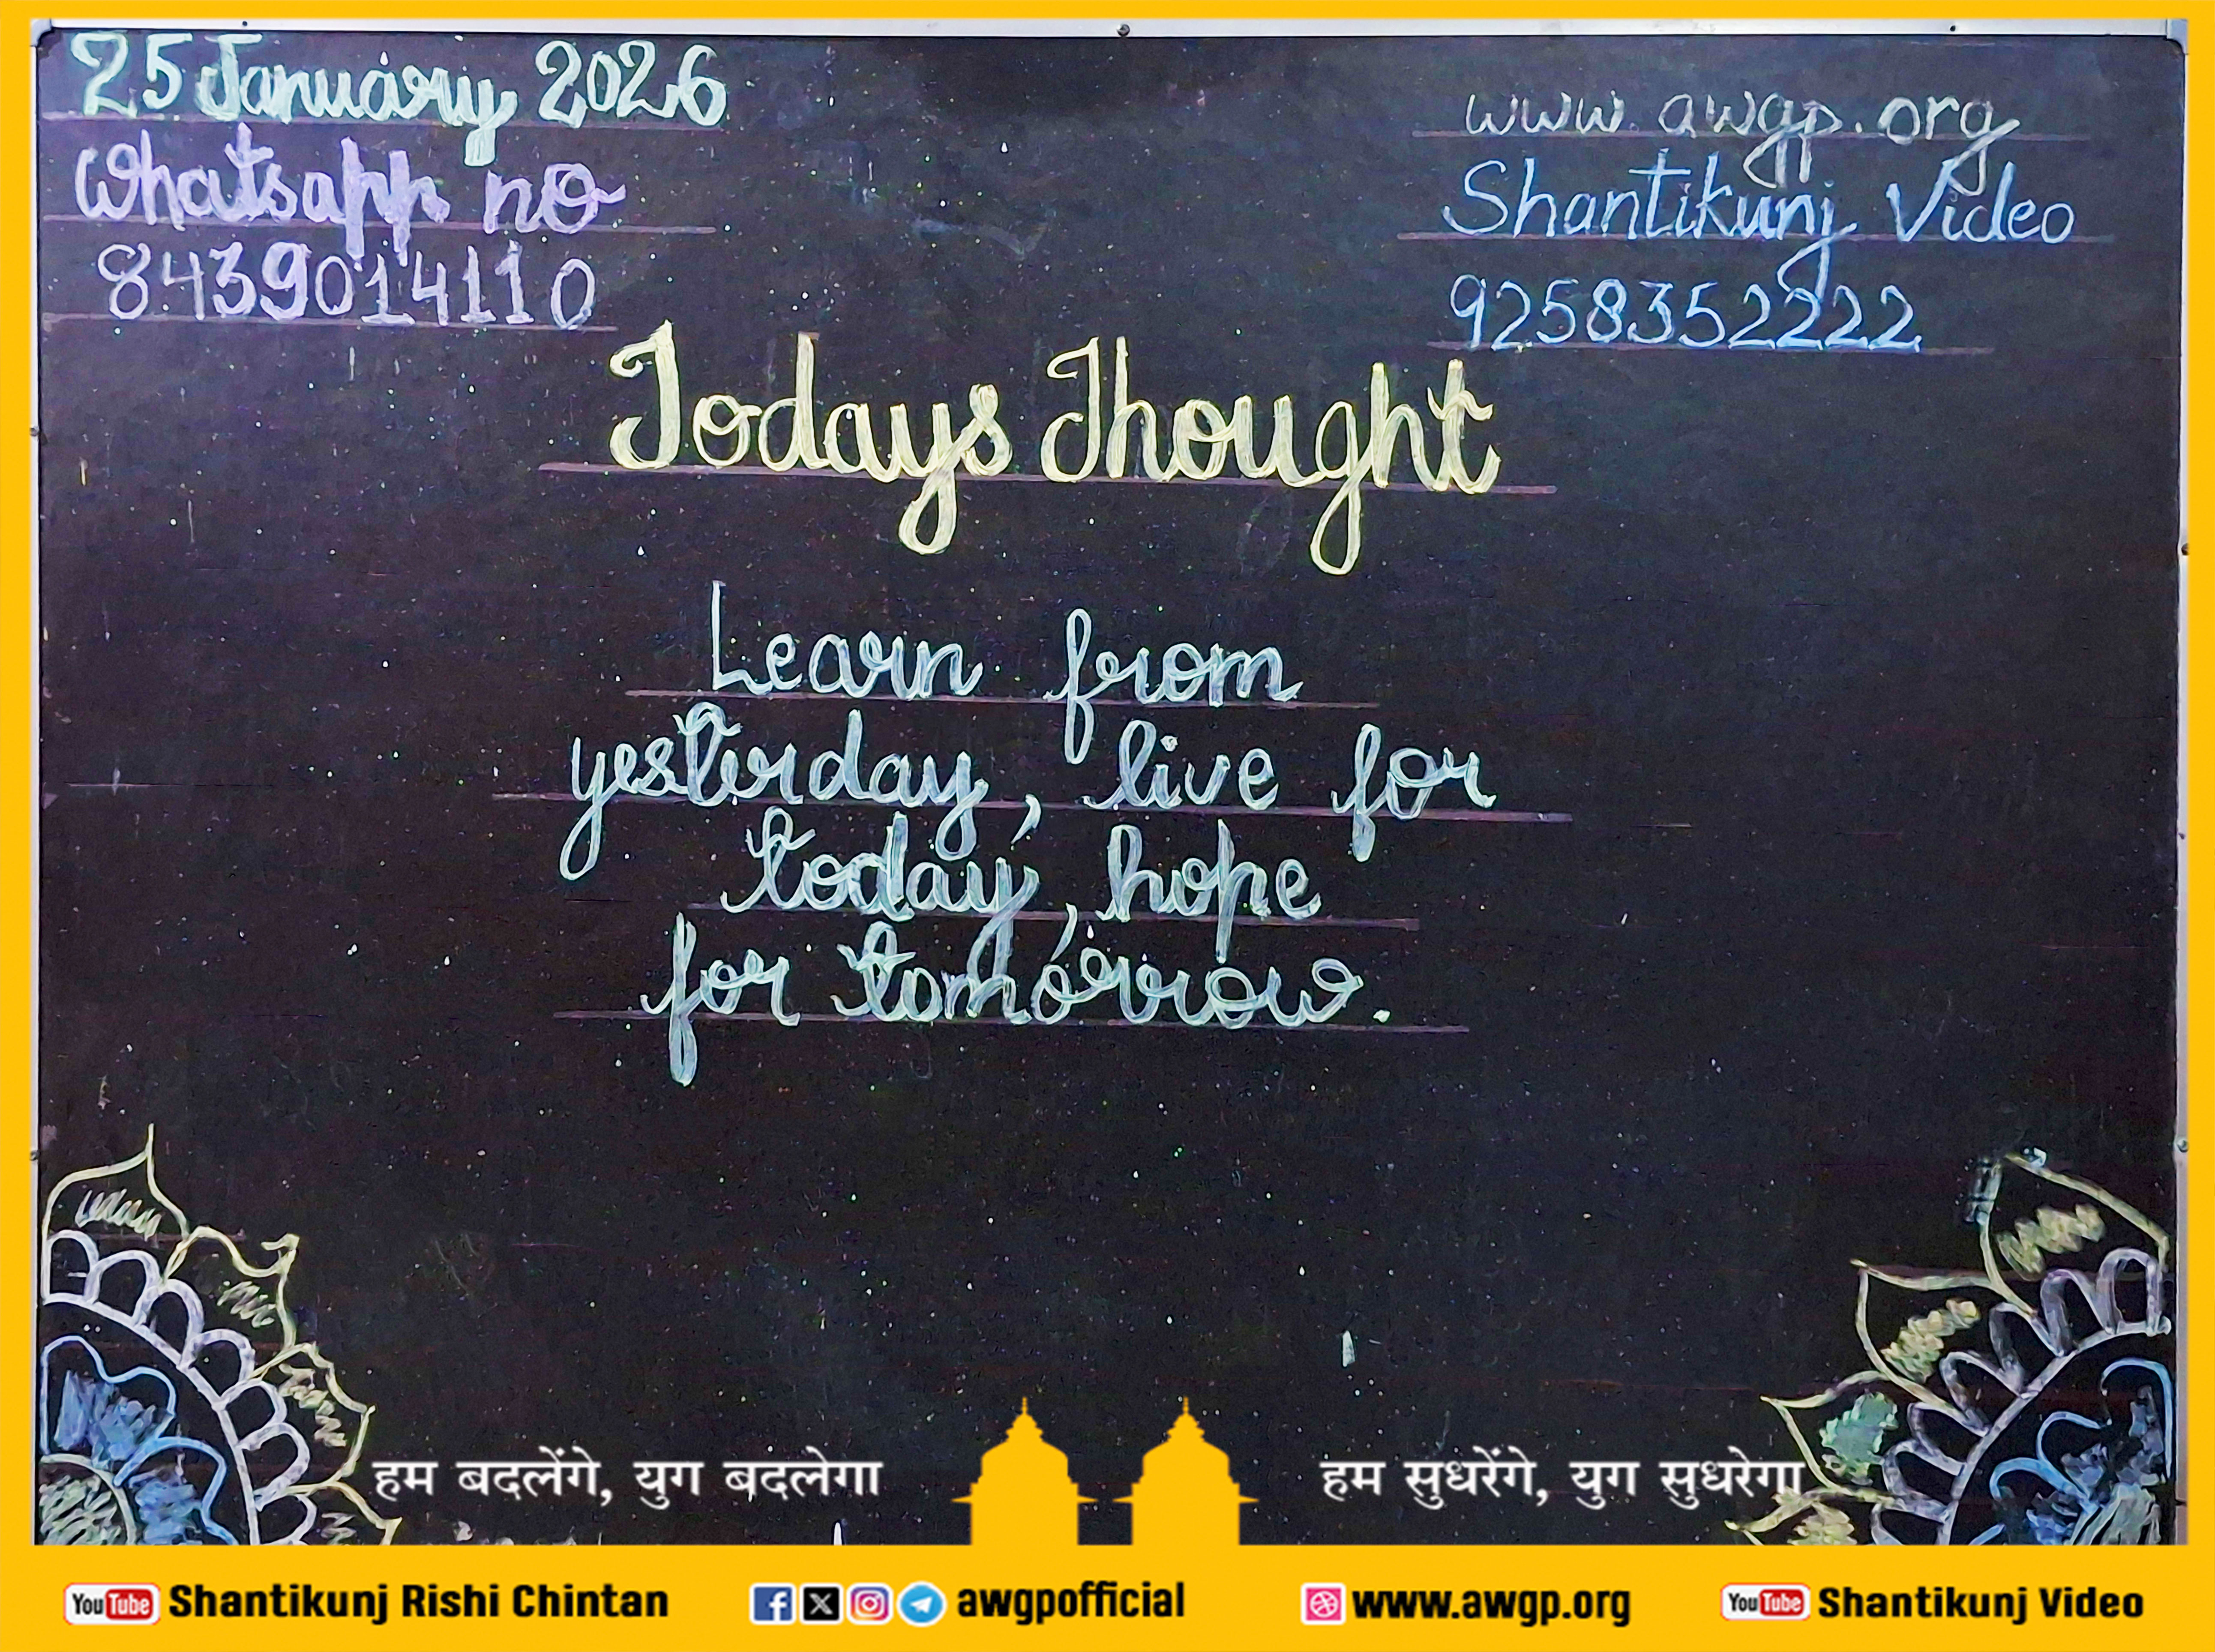 25 January 2026
Whatsapp no
8439014110
www.awgp.org
Shantikunj Video
9258352222
Todays Thought
Learn from
yesterday, live for
today, hope
for tomorrow.
हम बदलेंगे, युग बदलेगा
हम सुधरेंगे, युग सुधरेगा
YouTube Shantikunj Rishi Chintan
awgpofficial
www.awgp.org
YouTube Shantikunj Video